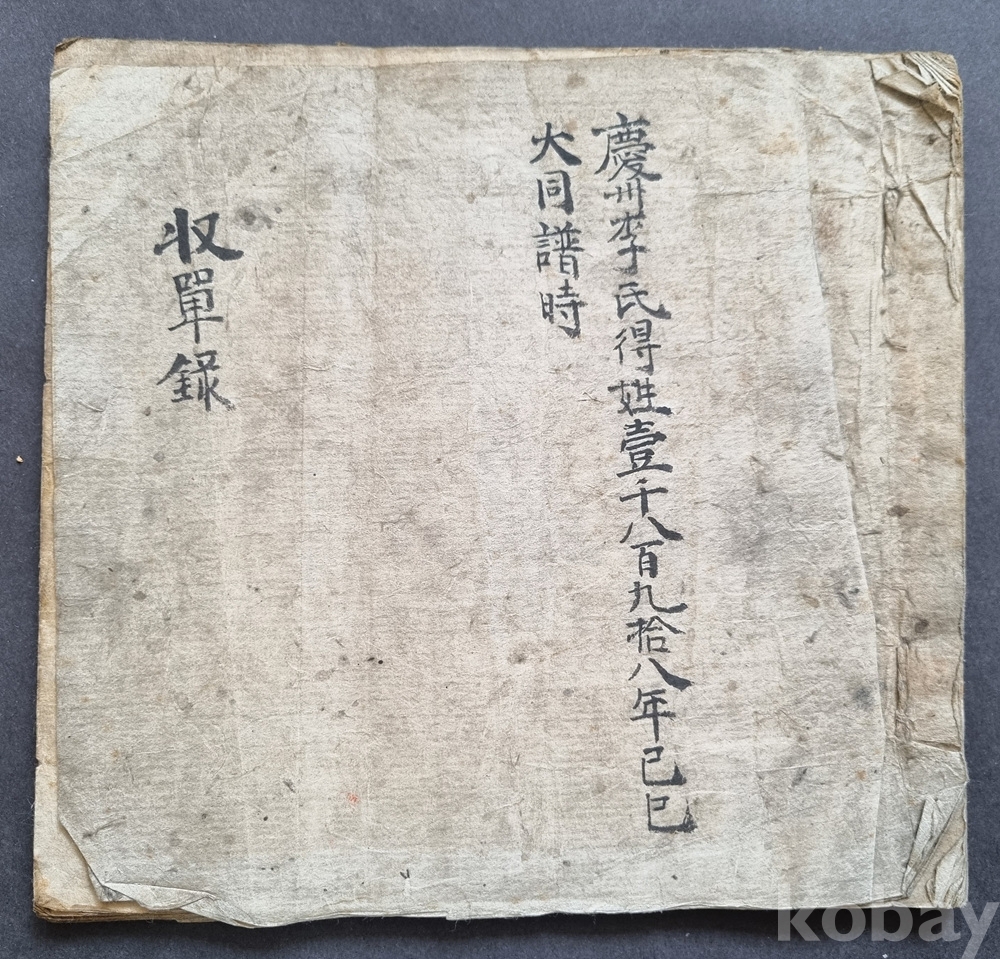 慶州李氏得姓壹千八百九拾八年己巳
大同譜時
収單録
kobay